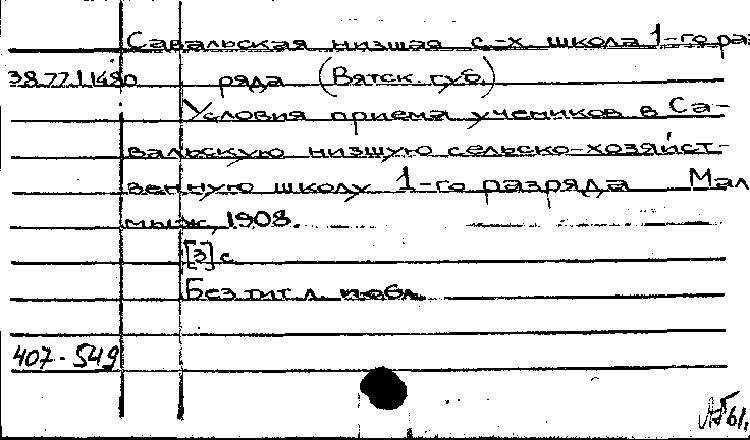 Савальская низшая с-х. школа 1-го раз
38.77.1.148а ряда (Вятск. губ.)
Условия приема учеников в Са-
вальскую низшую сельско-хозяйст-
венную школу 1-го разряда Мал
мыж, 1908.
[3] с
Без тит л. и обл.
407-549